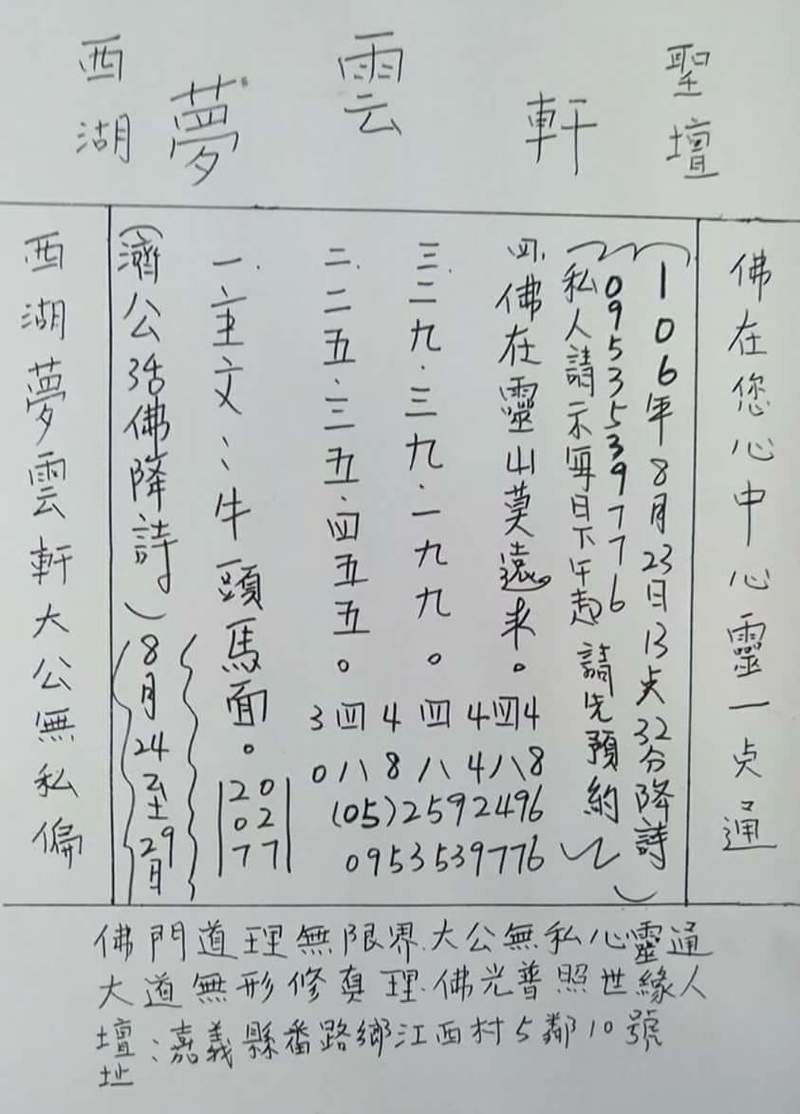 西湖夢雲軒聖壇
佛在您心中心靈一点通
(106年8月23日13点32分降詩)
0953539776
私人請示每日下午起 請先預約
四.佛在靈山莫遠求。四4
三.二九.三九.一九九。
二.二五.三五.四五五。
一.主文:牛頭馬面。
3四4四4四4
0八8八4八8
(05)2592496
0953539776
20
02
77
(濟公活佛降詩)
8月24至29日
西湖夢雲軒大公無私偏
佛門道理無限界.大公無私心靈通
大道無形修真理.佛光普照世緣人
壇址:嘉義縣番路鄉江西村5鄰10號